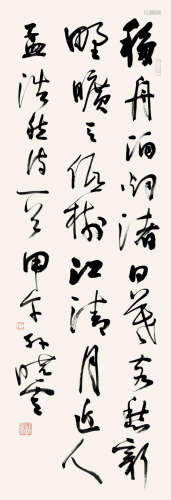 移舟泊烟渚日暮客愁新
野曠天低樹江清月近人
孟浩然詩一首 甲午 孫曉雲